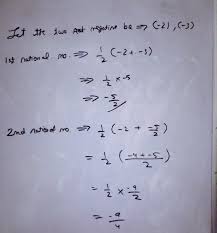 Let the two negative be ⇒ (-2), (-3)
1st rational no. ⇒ 1/2 (-2 + -3)
⇒ 1/2 × -5
⇒ -5/2
2nd rational no ⇒ 1/2 (-2 + -5/2)
= 1/2 (-4 + -5/2)
= 1/2 × -9/2
= -9/4